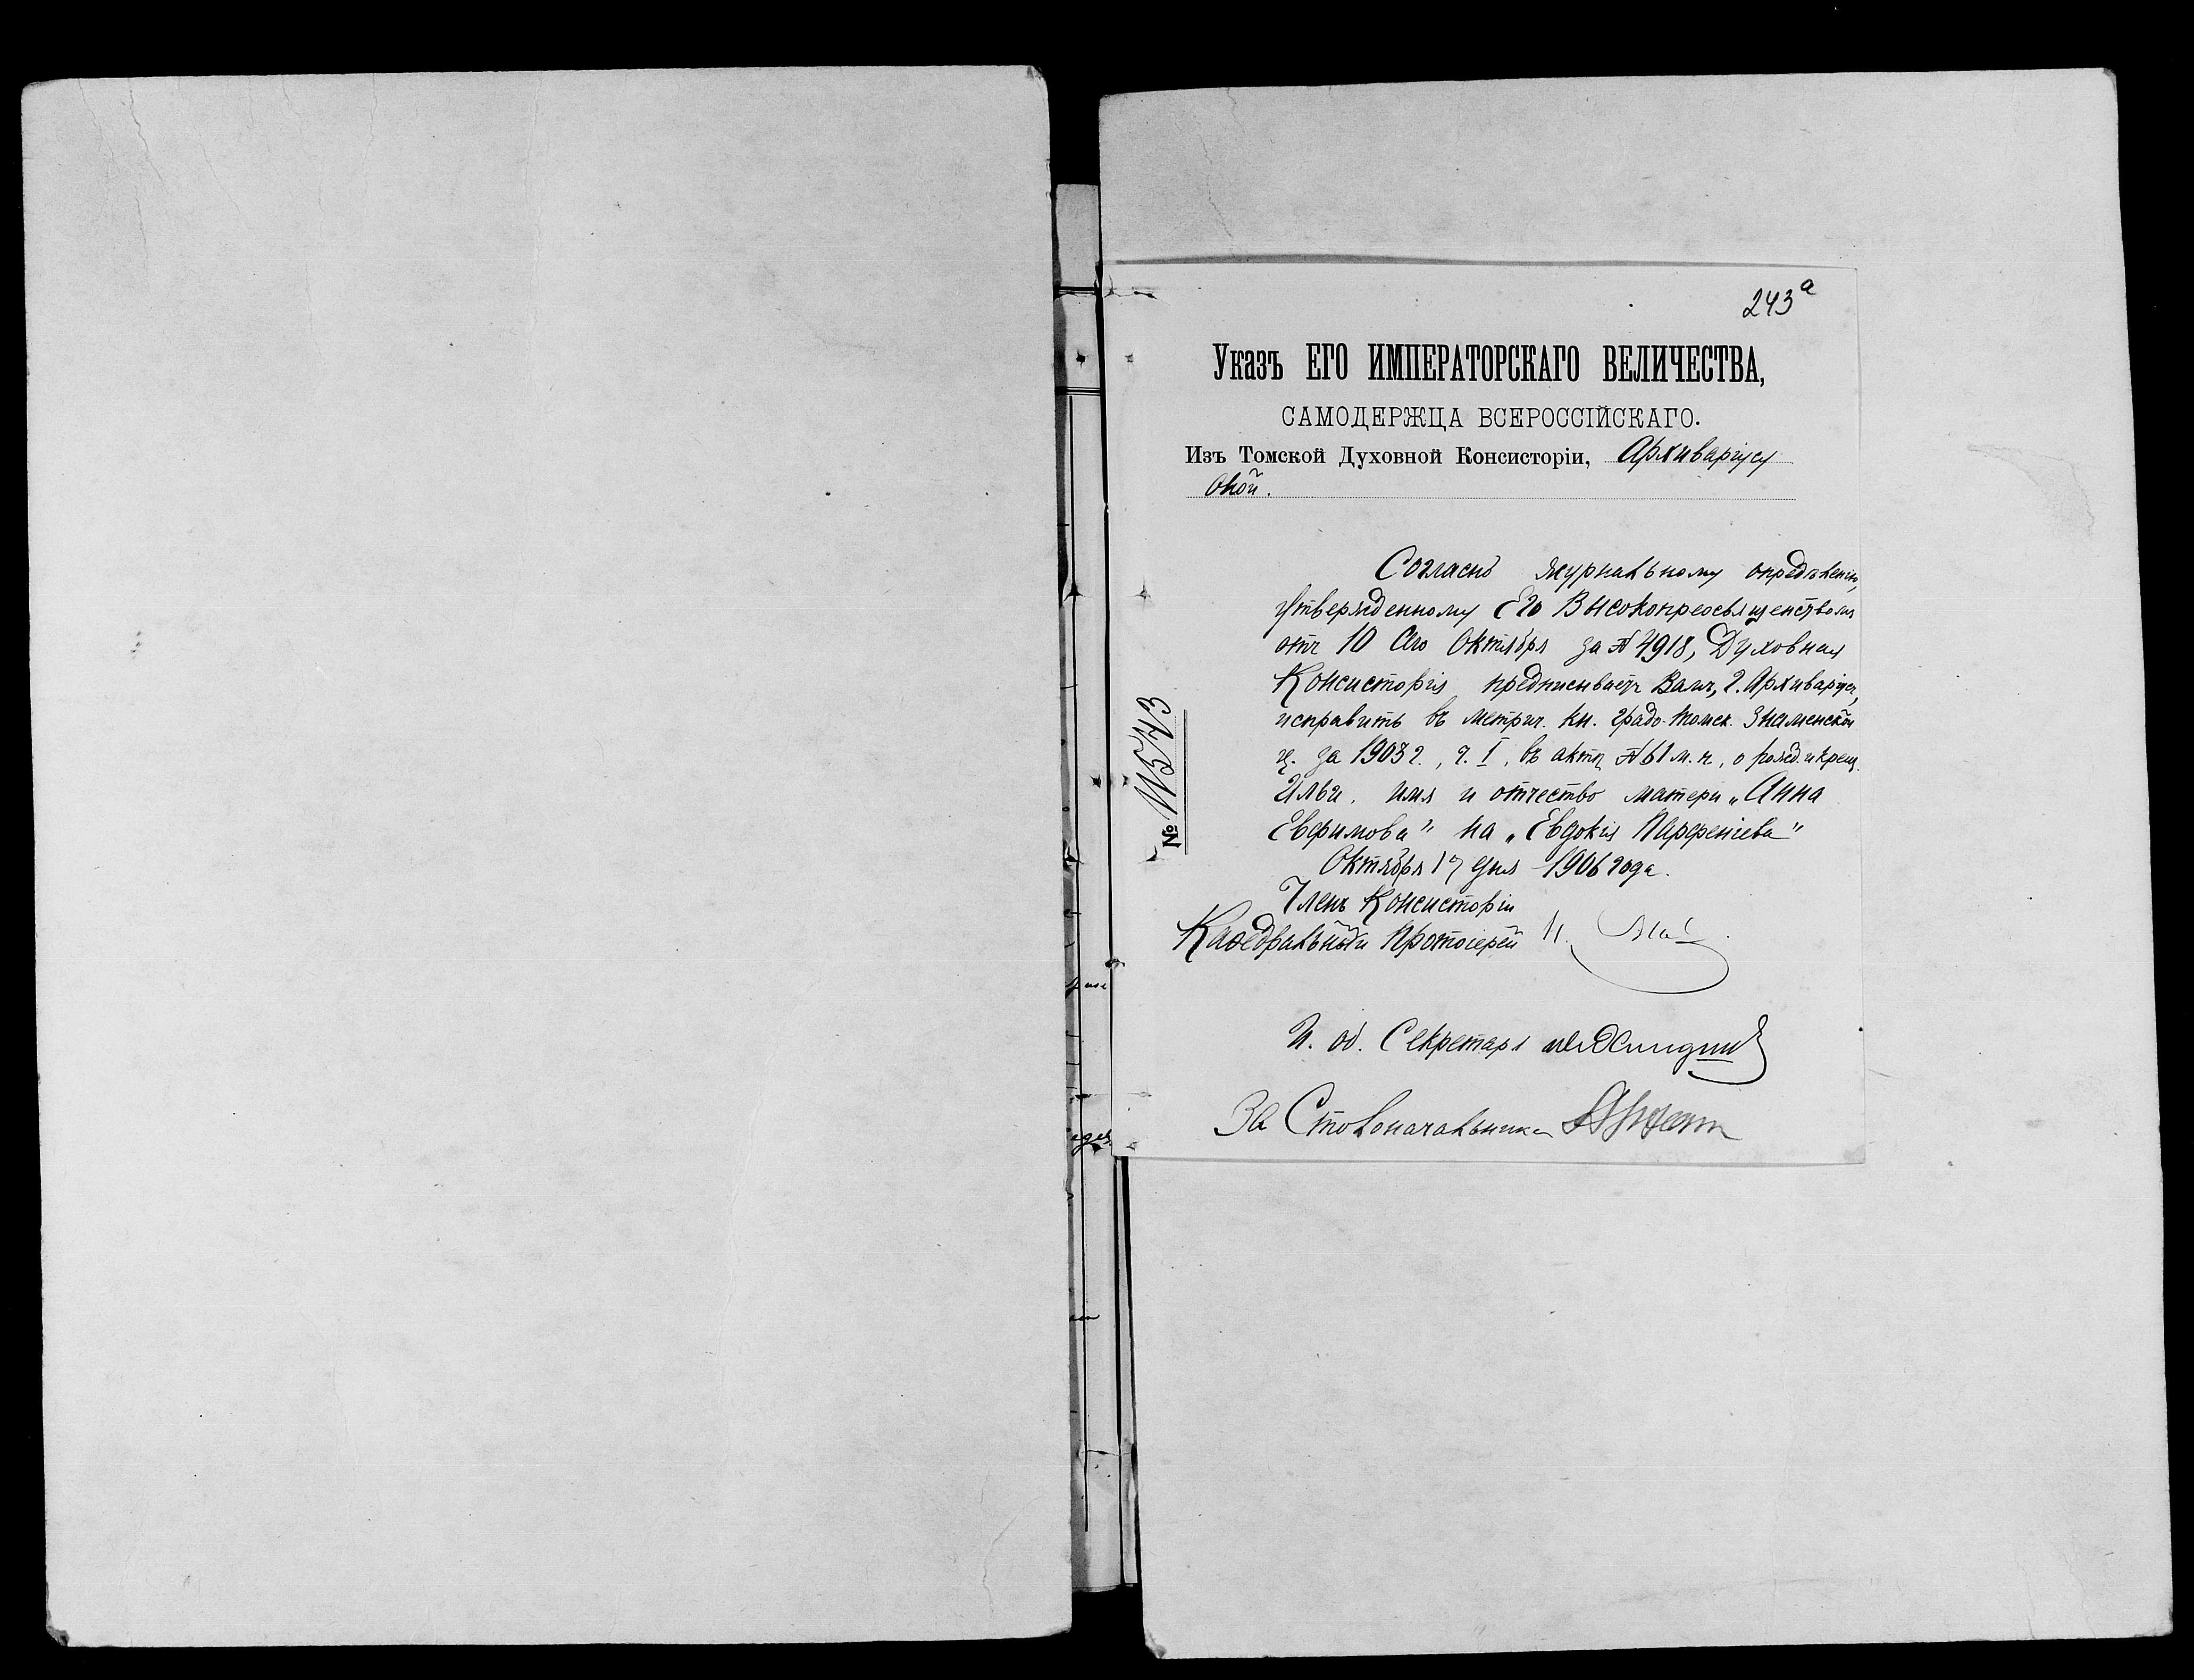 243а
Указъ ЕГО ИМПЕРАТОРСКАГО ВЕЛИЧЕСТВА,
САМОДЕРЖЦА ВСЕРОССІЙСКАГО.
Изъ Томской Духовной Консисторіи, Архиваріусу
оной.
Согласно журнальному опредѣленію,
утвержденному Его Высокопреосвященствомъ
отъ 10 сего Октября за № 4918, Духовная
Консисторія предписываетъ Вамъ, г. Архиваріусъ,
исправить въ метрич. кн. градо-Томск. Знаменской
ц. за 1903 г., ч. I, въ актѣ № 61 м. п., о рожд. и крещ.
Ильи, имя и отчество матери „Анна
Евфимова" на „Евдокія Парфеніева"
Октября 17 дня 1906 года.
Членъ Консисторіи
Каѳедральный Протоіерей
И. об. Секретаря
За Столоначальника
№ 11573